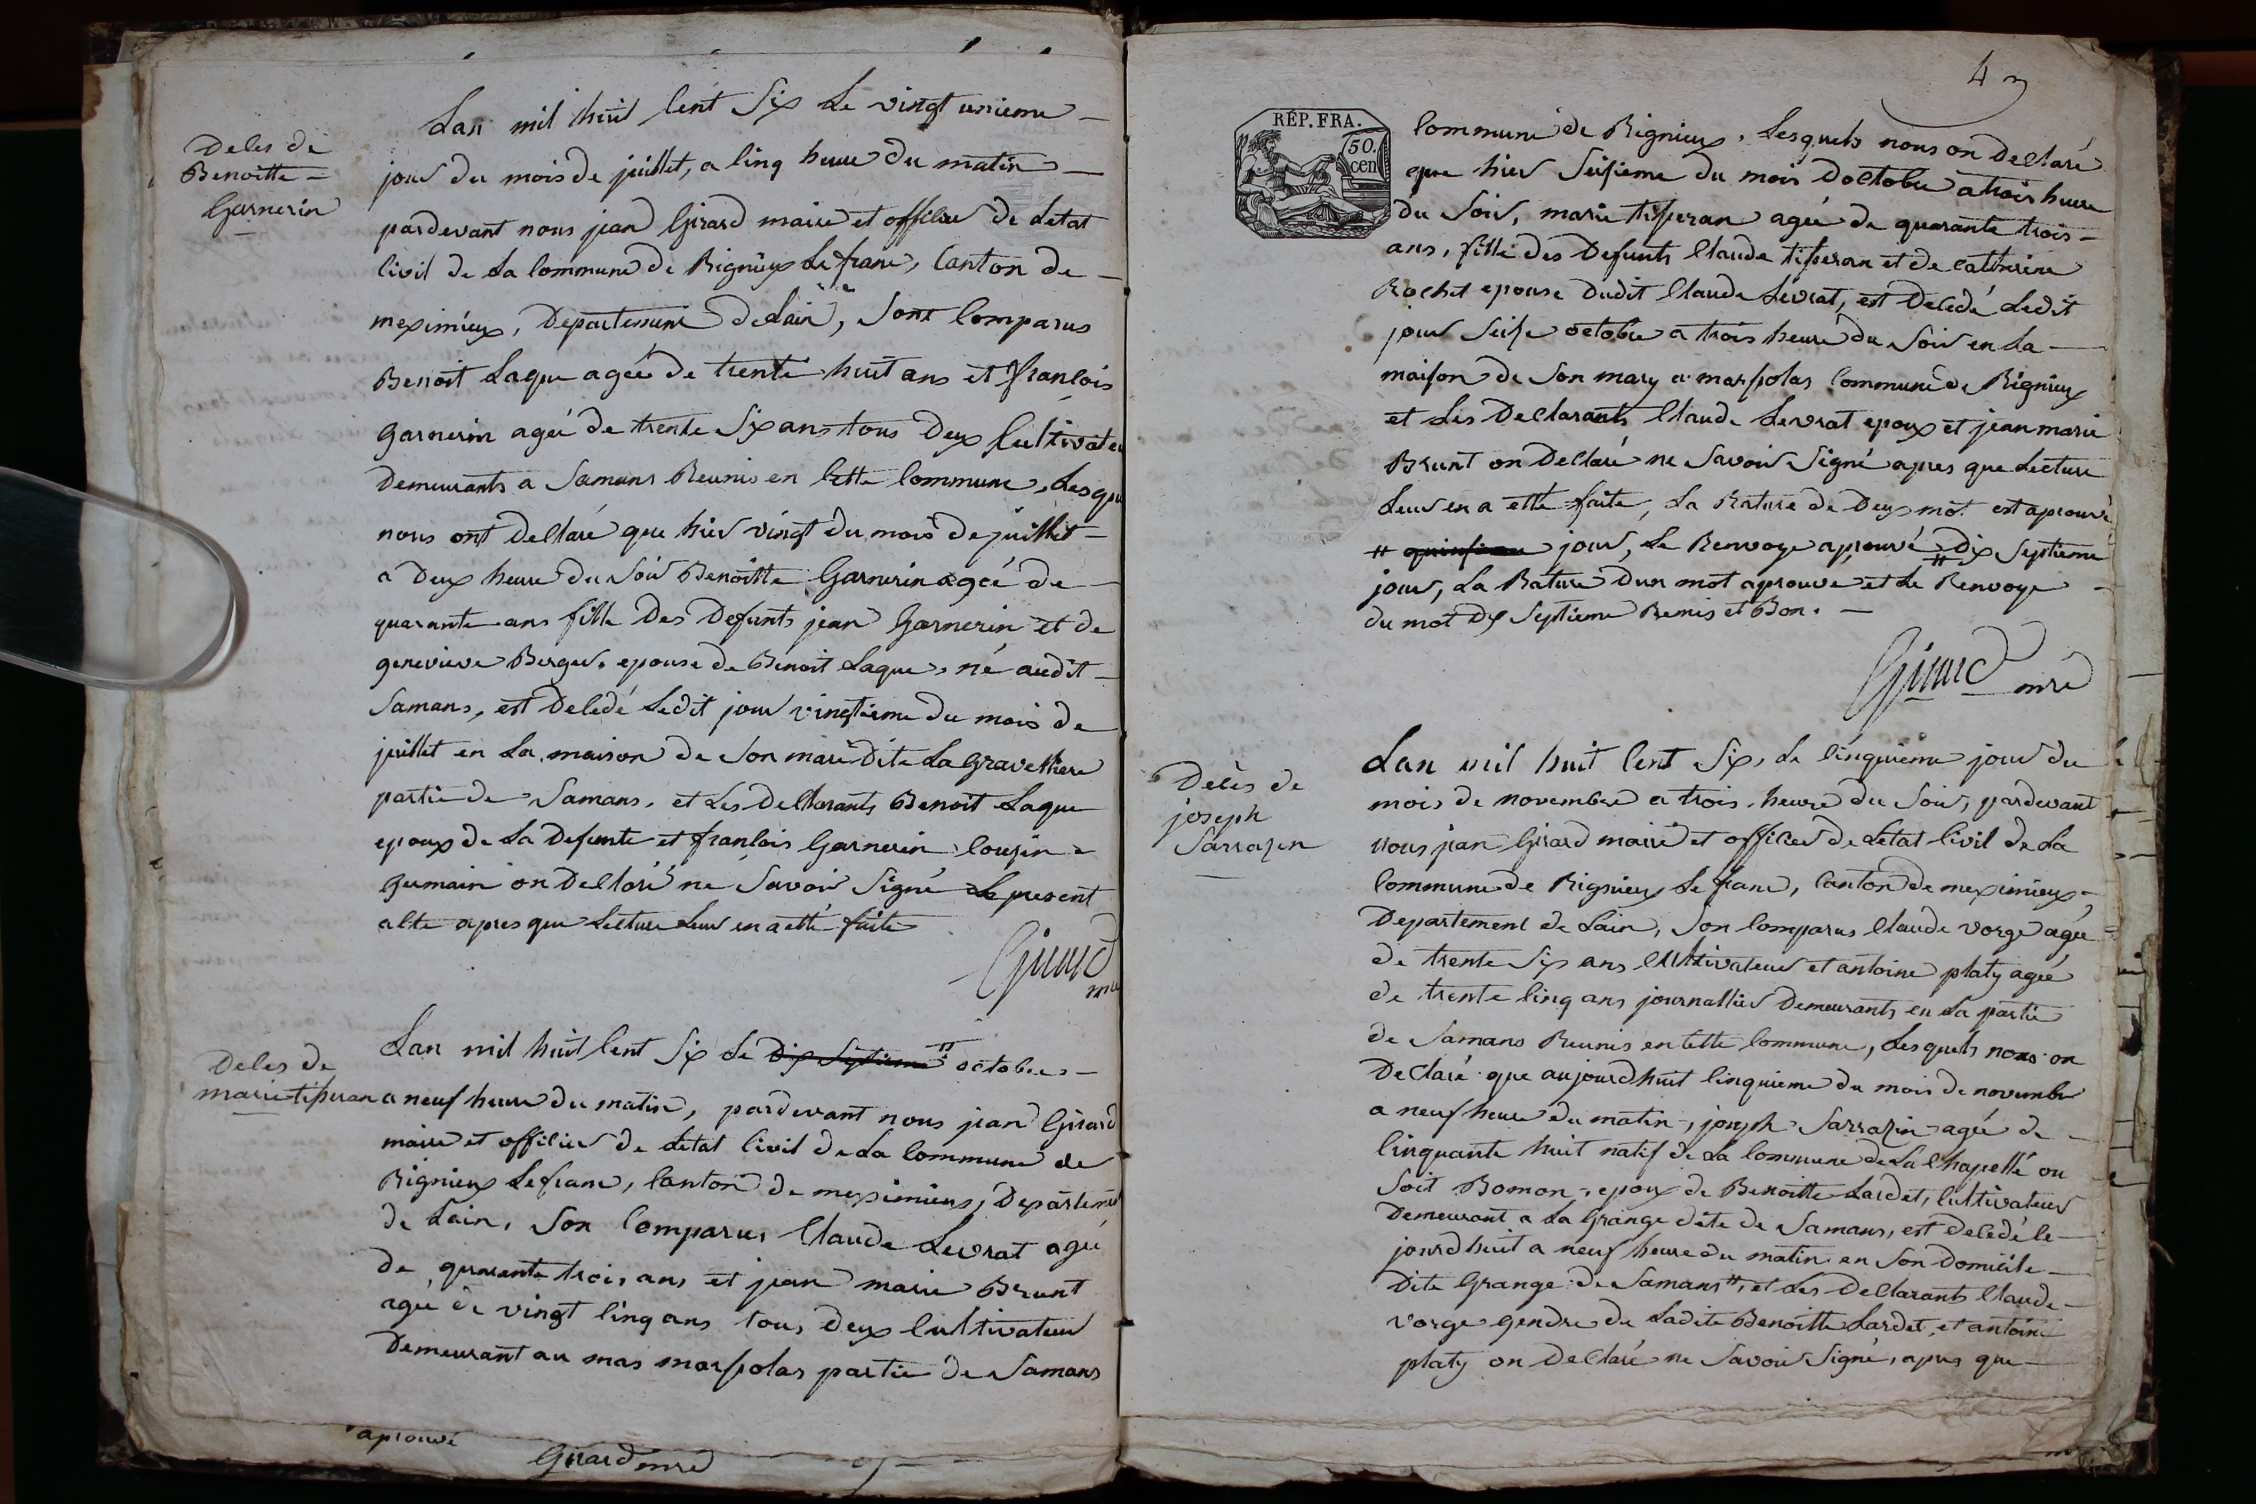 Deces de
Benoitte
Garnerin
Lan mil huit Cent Six Le vingt unieme
jour du mois de juillet, a Cinq heure du matin
pardevant nous jean Girard maire et officier de Letat
Civil de La Commune de Rignieux Le franc, Canton de
meximieux, Departement de Lain, sont Comparus
Benoit Laque agée de trente huit ans et francois
Garnerin ageé de trente Six ans tous Deux Cultivateu
Demeurants a Samans Reunis en Cette Commune, Lesque
nous ont Declaré que hier vingt du mois de juillet
a Deux heure du Soir Benoitte Garnerin ageé de
quarante ans fille Des Defunts jean Garnerin et de
genevieve Berger, epouse de Benoit Laque, né audit
Samans, est Decedé Ledit jour vingtieme du mois de
juillet en La maison de Son mari Dite La Gravelliere
partie de Samans, et Les Declarants Benoit Laque
epoux de La Defunte et francois Garnerin Cousin
Germain on Declaré ne Savoir Signé Le present
acte apres que Lecture Leur en a etté faite
Girard
mre
Deces de
marie tisseran
Lan mil huit Cent Six Le Dix Septieme # octobre
a neuf heure du matin, pardevant nous jean Girard
maire et officier de Letat Civil de La Commune de
Rignieux Le franc, Canton de meximieux, Departement
de Lain, Son Comparus Claude Levrat ageé
de quarante trois ans et jean marie Brunt
agee de vingt Cinq ans tous Deux Cultivateur
Demeurant au mas marsolas partie de Samans
aprouvé
Girard mre
43
RÉP. FRA.
50.
cen
Commune de Rignieux, Lesquels nous on Declaré
que hier Seisieme du mois Doctobre a trois heure
du Soir, marie tisseran ageé de quarante trois
ans, fille des Defunts Claude tisseran et de catherine
Rochet epouse Dudit Claude Levrat, est Decedé Ledit
jour Seise octobre a trois heure du Soir en La
maison de Son mary a marsolas Commune de Rignieux
et Les Declarants Claude Levrat epoux et jean marie
Brunt on Declaré ne Savoir Signé apres que Lecture
Leur en a etté faite, La Rature de Deux mot est aprouvé
# jour, Le Renvoye aprouvé # Dix Septieme
jour, La Rature Dun mot aprouve et Le Renvoye
du mot Dix Septieme Remis et Bon.
Girard mre
Decès de
joseph
Sarrazin
Lan mil huit Cent Six, Le Cinquieme jour du
mois de novembre a trois heure du Soir, pardevant
nous jean Girard maire et officier de Letat Civil de La
Commune de Rignieux Le franc, Canton de meximieux,
Departement de Lain, Son Comparus Claude vorge ageé
de trente Six ans Cultivateur et antoine platy ageé
de trente Cinq ans journallier Demeurants en La partie
de Samans Reunis en Cette Commune, Lesquels nous on
Declaré que aujourdhuit Cinquieme du mois de novembre
a neuf heure du matin, joseph Sarrazin ageé de
Cinquante huit natif de La Commune de La Chapelle ou
Soit Bomon, epoux de Benoitte Lardet, Cultivateur
Demeurant a La Grange dite de Samans, est Decedé le
jourdhuit a neuf heure du matin en Son Domicile
Dite Grange de Samans #, et Les Declarants Claude
vorge Gendre de Ladite Benoitte Lardet, et antoine
platy on Declaré ne Savoir Signé, apres que